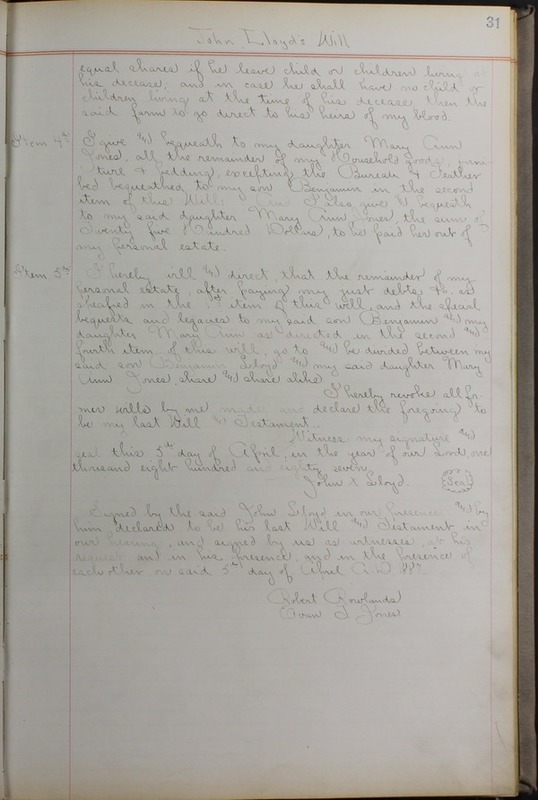 31
John Lloyd's Will
equal shares if he leave child or children living at
his decease; and in case he shall have no child or
children living at the time of his decease, then the
said farm to go direct to his heirs of my blood.
Item 4th I give and bequeath to my daughter Mary Ann
Jones, all the remainder of my Household goods, furni-
ture & bedding, excepting the Bureau & Feather
bed bequeathed to my son Benjamin in the second
item of this Will: I also give and bequeath
to my said daughter Mary Ann Jones, the sum of
Twenty five Hundred Dollars, to be paid her out of
my personal estate.
Item 5th I hereby will and direct, that the remainder of my
personal estate, after paying my just debts &c, as
specified in the 1st item of this will, and the special
bequests and legacies to my said son Benjamin and my
daughter Mary Ann as directed in the second and
fourth item of this will, go to and be divided between my
said son Benjamin Lloyd and my said daughter Mary
Ann Jones, share and share alike.
I hereby revoke all for-
mer wills by me made and declare the foregoing to
be my last Will and Testament.
Witness my signature and
seal this 5th day of April, in the year of our Lord one
thousand eight hundred and eighty seven
John X Lloyd. Seal
Signed by the said John Lloyd in our presence and by
him declared to be his last Will and Testament in
our hearing, and signed by us as witnesses at his
request and in his presence, and in the presence of
each other on said 5th day of April A.D. 1887
Robert Rowlands
Jones